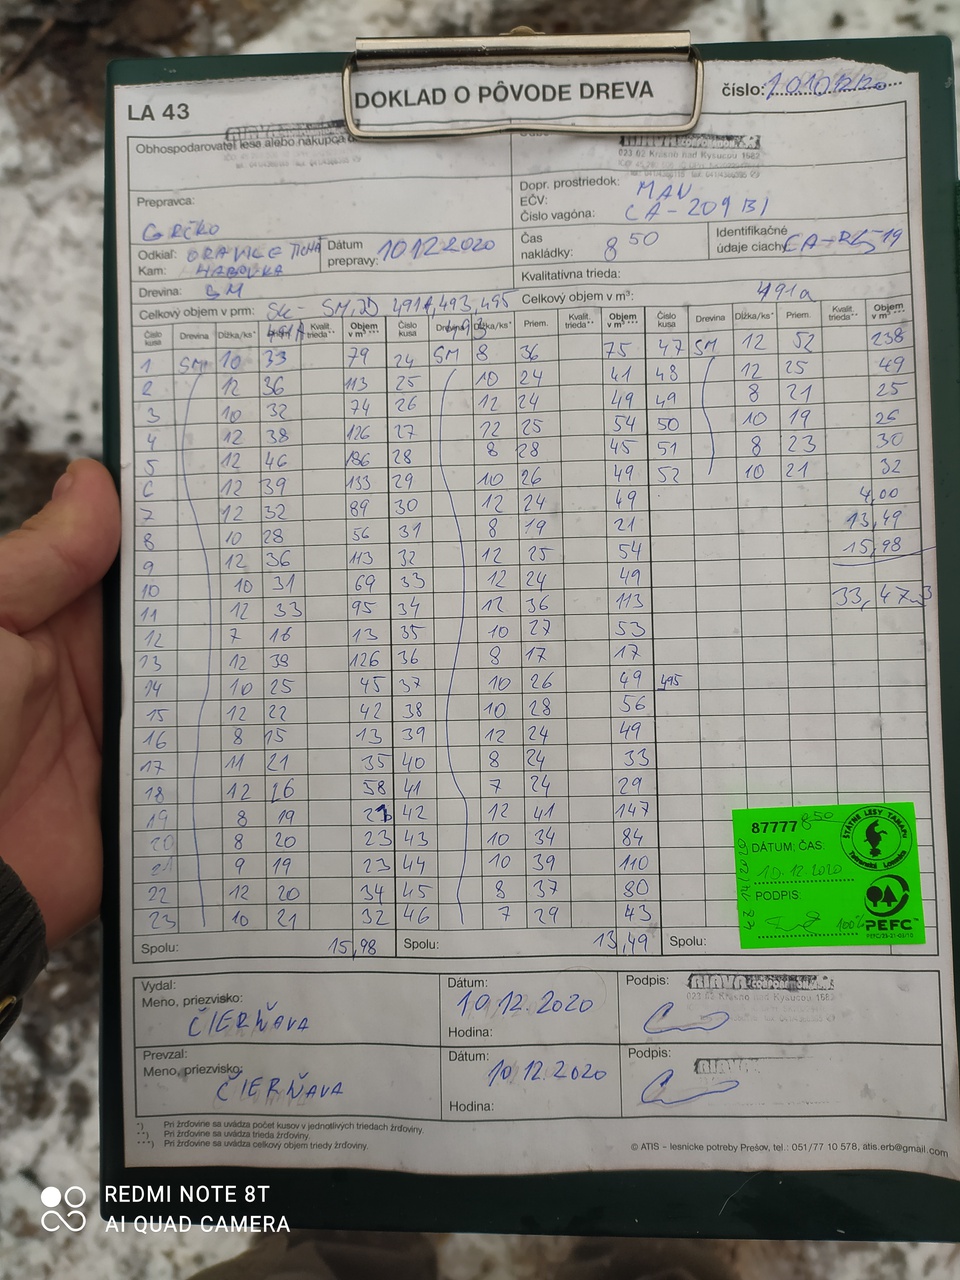 LA 43
DOKLAD O PÔVODE DREVA
číslo:
Obhospodarovateľ lesa alebo nákupca
RIAVA CORPORATION
023 02 Krásno nad Kysucou 1682
Prepravca:
GRČKO
Dopr. prostriedok: MAN
EČV:
Číslo vagóna: CA-209 BI
Odkiaľ: ORAVICE TICHÁ
Kam: HABOVKA
Dátum prepravy: 10 12 2020
Čas nakládky: 8 50
Identifikačné údaje ciachy
Drevina: SM
Kvalitatívna trieda:
Celkový objem v prm: SK - SM, 491A, 493, 495
Celkový objem v m³: 491a
Číslo kusa Drevina Dĺžka/ks* 491A Kvalit. trieda** Objem v m³ *** Číslo kusa Drevina Dĺžka/ks* Priem. Kvalit. trieda** Objem v m³ *** Číslo kusa Drevina Dĺžka/ks* Priem. Kvalit. trieda** Objem v m³ ***
1 SM 10 33 79 24 SM 8 36 75 47 SM 12 52 238
2 12 36 113 25 10 24 41 48 12 25 49
3 10 32 74 26 12 24 49 49 8 21 25
4 12 38 126 27 12 25 54 50 10 19 26
5 12 46 186 28 8 28 45 51 8 23 30
6 12 39 133 29 10 26 49 52 10 21 32
7 12 32 89 30 12 24 49 4,00
8 10 28 56 31 8 19 21 13,49
9 12 36 113 32 12 25 54 15,98
10 10 31 69 33 12 24 49
11 12 33 95 34 12 36 113 33,47
12 7 16 13 35 10 27 53
13 12 38 126 36 8 17 17
14 10 25 45 37 10 26 49 495
15 12 22 42 38 10 28 56
16 8 15 13 39 12 24 49
17 11 21 35 40 8 24 33
18 12 26 58 41 7 24 29
19 8 19 42 12 41 147
20 8 20 23 43 10 34 84
21 9 19 23 44 10 39 110
22 12 20 34 45 8 37 80
23 10 21 32 46 7 29 43
Spolu: 15,98 Spolu: 13,49 Spolu:
87777 850
DÁTUM; ČAS:
10.12.2020
PODPIS:
100%
ŠTÁTNE LESY TANAPU
Tatranská Lomnica
PEFC
Vydal:
Meno, priezvisko:
ČIERŇAVA
Dátum:
10.12.2020
Hodina:
Podpis:
RIAVA CORPORATION
023 02 Krásno nad Kysucou 1682
Prevzal:
Meno, priezvisko:
ČIERŇAVA
Dátum:
10 12.2020
Hodina:
Podpis:
RIAVA
*) Pri žrďovine sa uvádza počet kusov v jednotlivých triedach žrďoviny.
**) Pri žrďovine sa uvádza trieda žrďoviny.
***) Pri žrďovine sa uvádza celkový objem triedy žrďoviny.
© ATIS – lesnícke potreby Prešov, tel.: 051/77 10 578, atis.erb@gmail.com
REDMI NOTE 8T
AI QUAD CAMERA